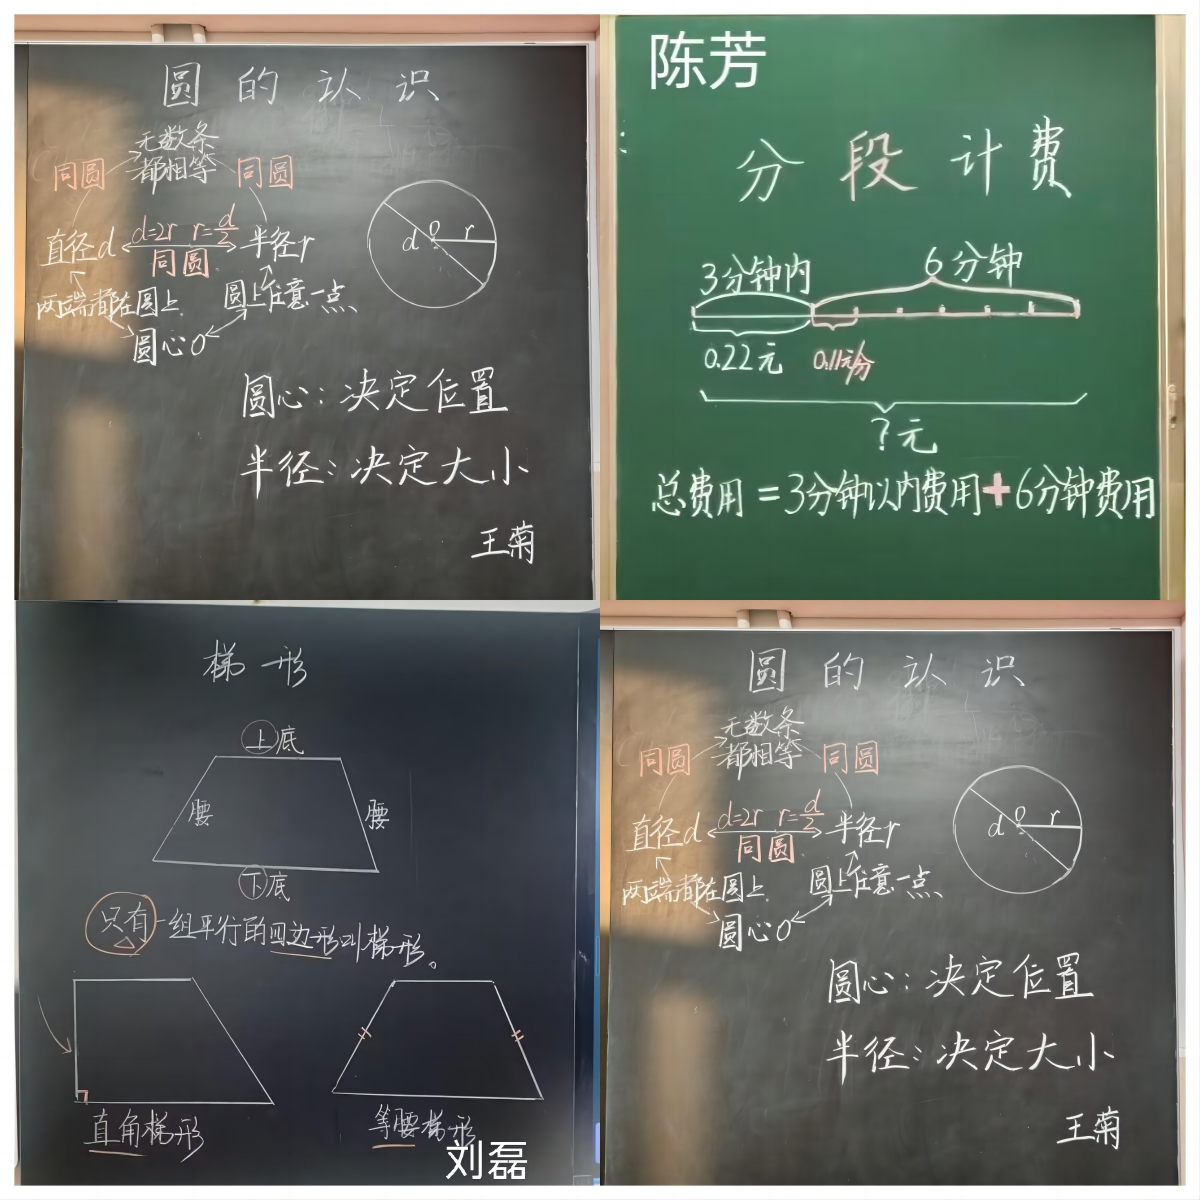 圆的认识
无数条
都相等
同圆
同圆
直径d
d=2r r=d/2
同圆
半径r
两端都在圆上
圆上任意一点
圆心O
O
r
d
圆心：决定位置
半径：决定大小
王菊
陈芳
分段计费
3分钟内
6分钟
0.22元
0.11元/分
?元
总费用=3分钟以内费用+6分钟费用
梯形
上底
腰
腰
下底
只有一组平行的四边形叫梯形。
直角梯形
等腰梯形
刘磊
圆的认识
无数条
都相等
同圆
同圆
直径d
d=2r r=d/2
同圆
半径r
两端都在圆上
圆上任意一点
圆心O
O
r
d
圆心：决定位置
半径：决定大小
王菊